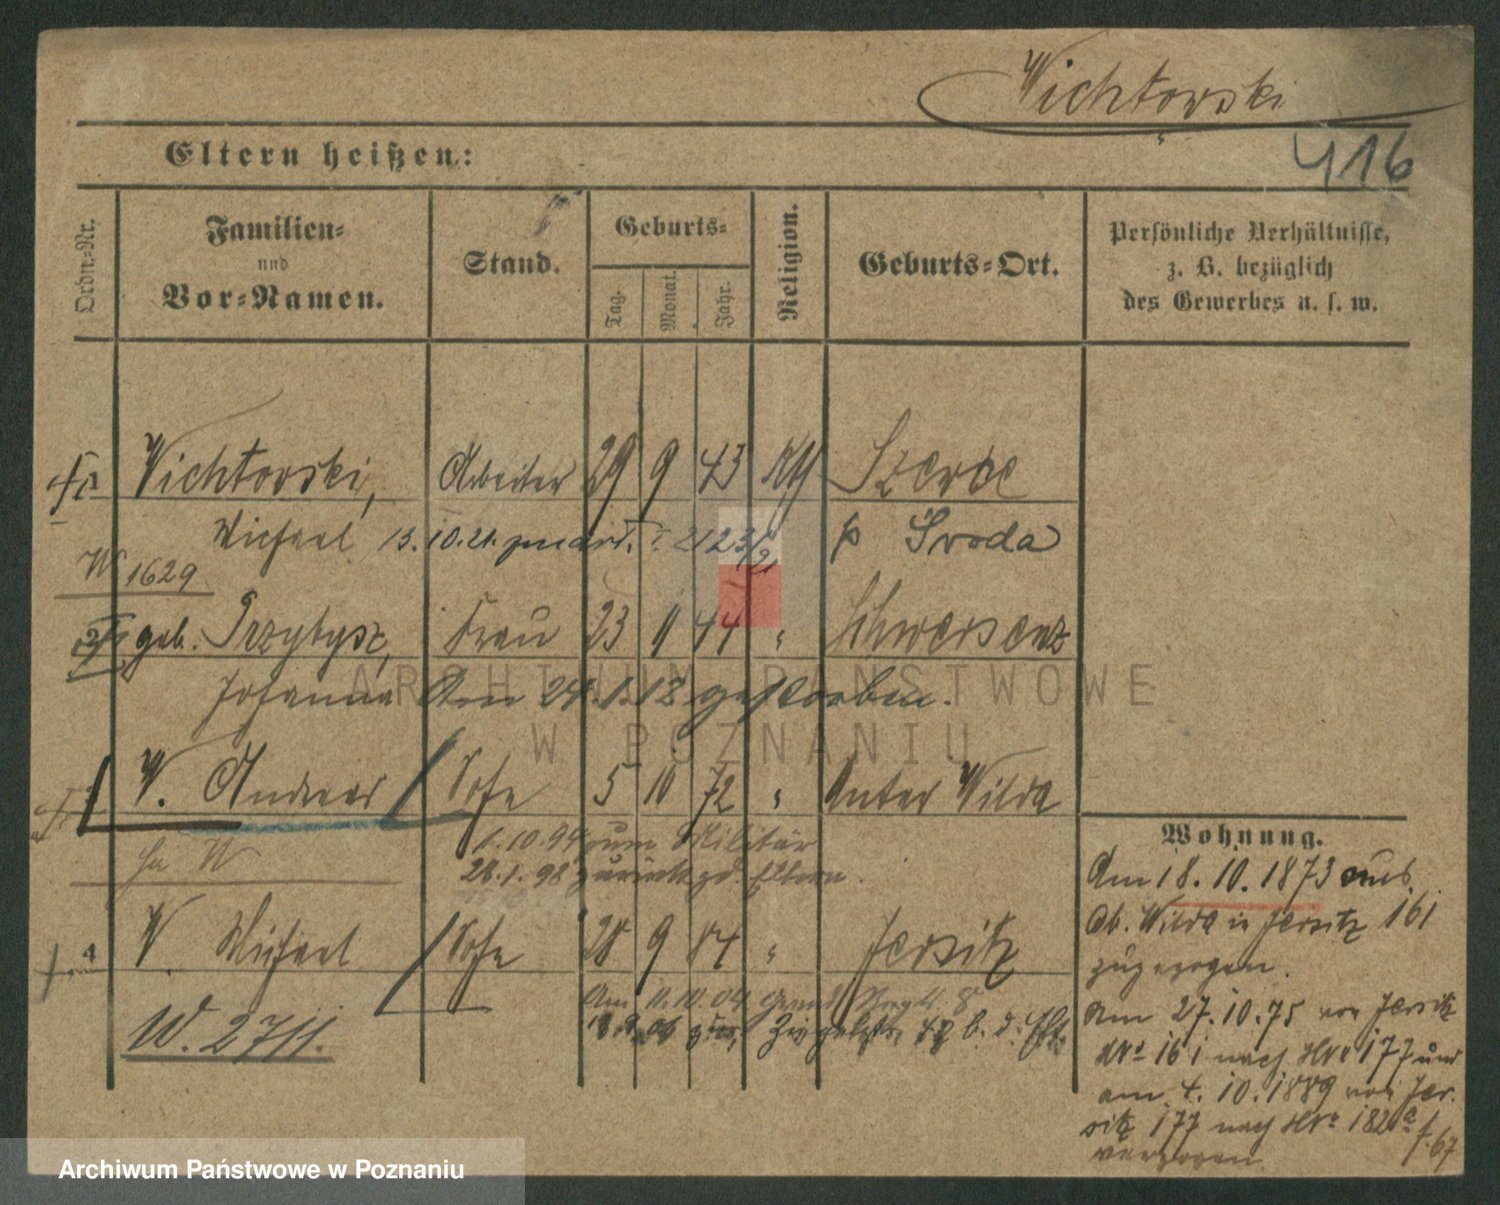 Wichtowski
416
Eltern heißen:
Ordn.-Nr.
Familien- und Vor-Namen.
Stand.
Geburts-
Tag.
Monat.
Jahr.
Religion.
Geburts-Ort.
Persönliche Verhältnisse, z. B. bezüglich des Gewerbes u. s. w.
Wichtowski, Arbeiter 29 9 43
Michael 13.10.21. 
p Środa
W 1629
geb. Przybysz, Frau 23 44 " Schwersenz
Johanna Am 24.1.18 gestorben.
W. Andreas Sohn 5 10 72 " Unter Wilda
1.10.94 zum Militär
28.1.98 zurück Eltern.
W. Michael Sohn 28 9 84 " Jersitz
Am 11.10.04
W. 2711.
Wohnung.
Am 18.10.1873 aus
Ob. Wilda in Jersitz 161
zugezogen.
Am 27.10.75 von Jersitz
No 161 nach No 177 und
am 4.10.1889 von Jer-
sitz 177 nach No 182a
verzogen.
ARCHIWUM PAŃSTWOWE
W POZNANIU
Archiwum Państwowe w Poznaniu